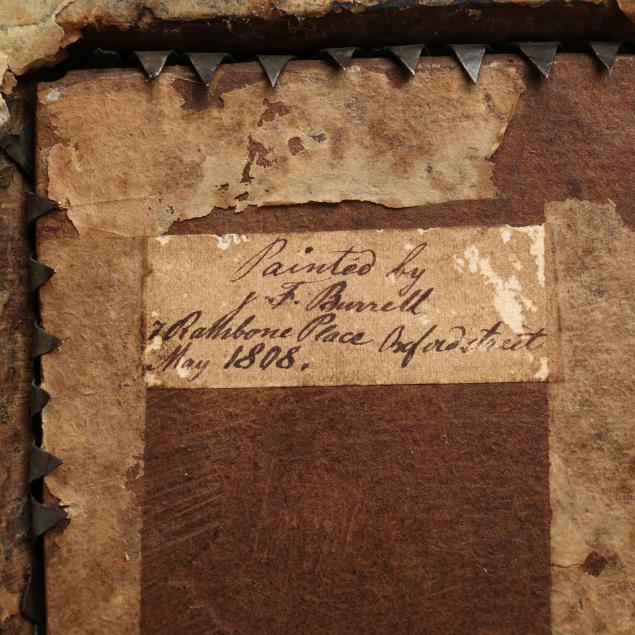 Painted by
J. F. Burrell
7 Rathbone Place Oxford street
May 1808.